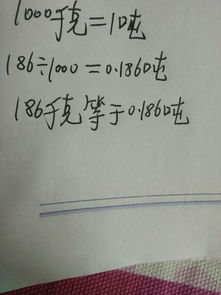 1000千克=1吨
186÷1000=0.186吨
186千克等于0.186吨